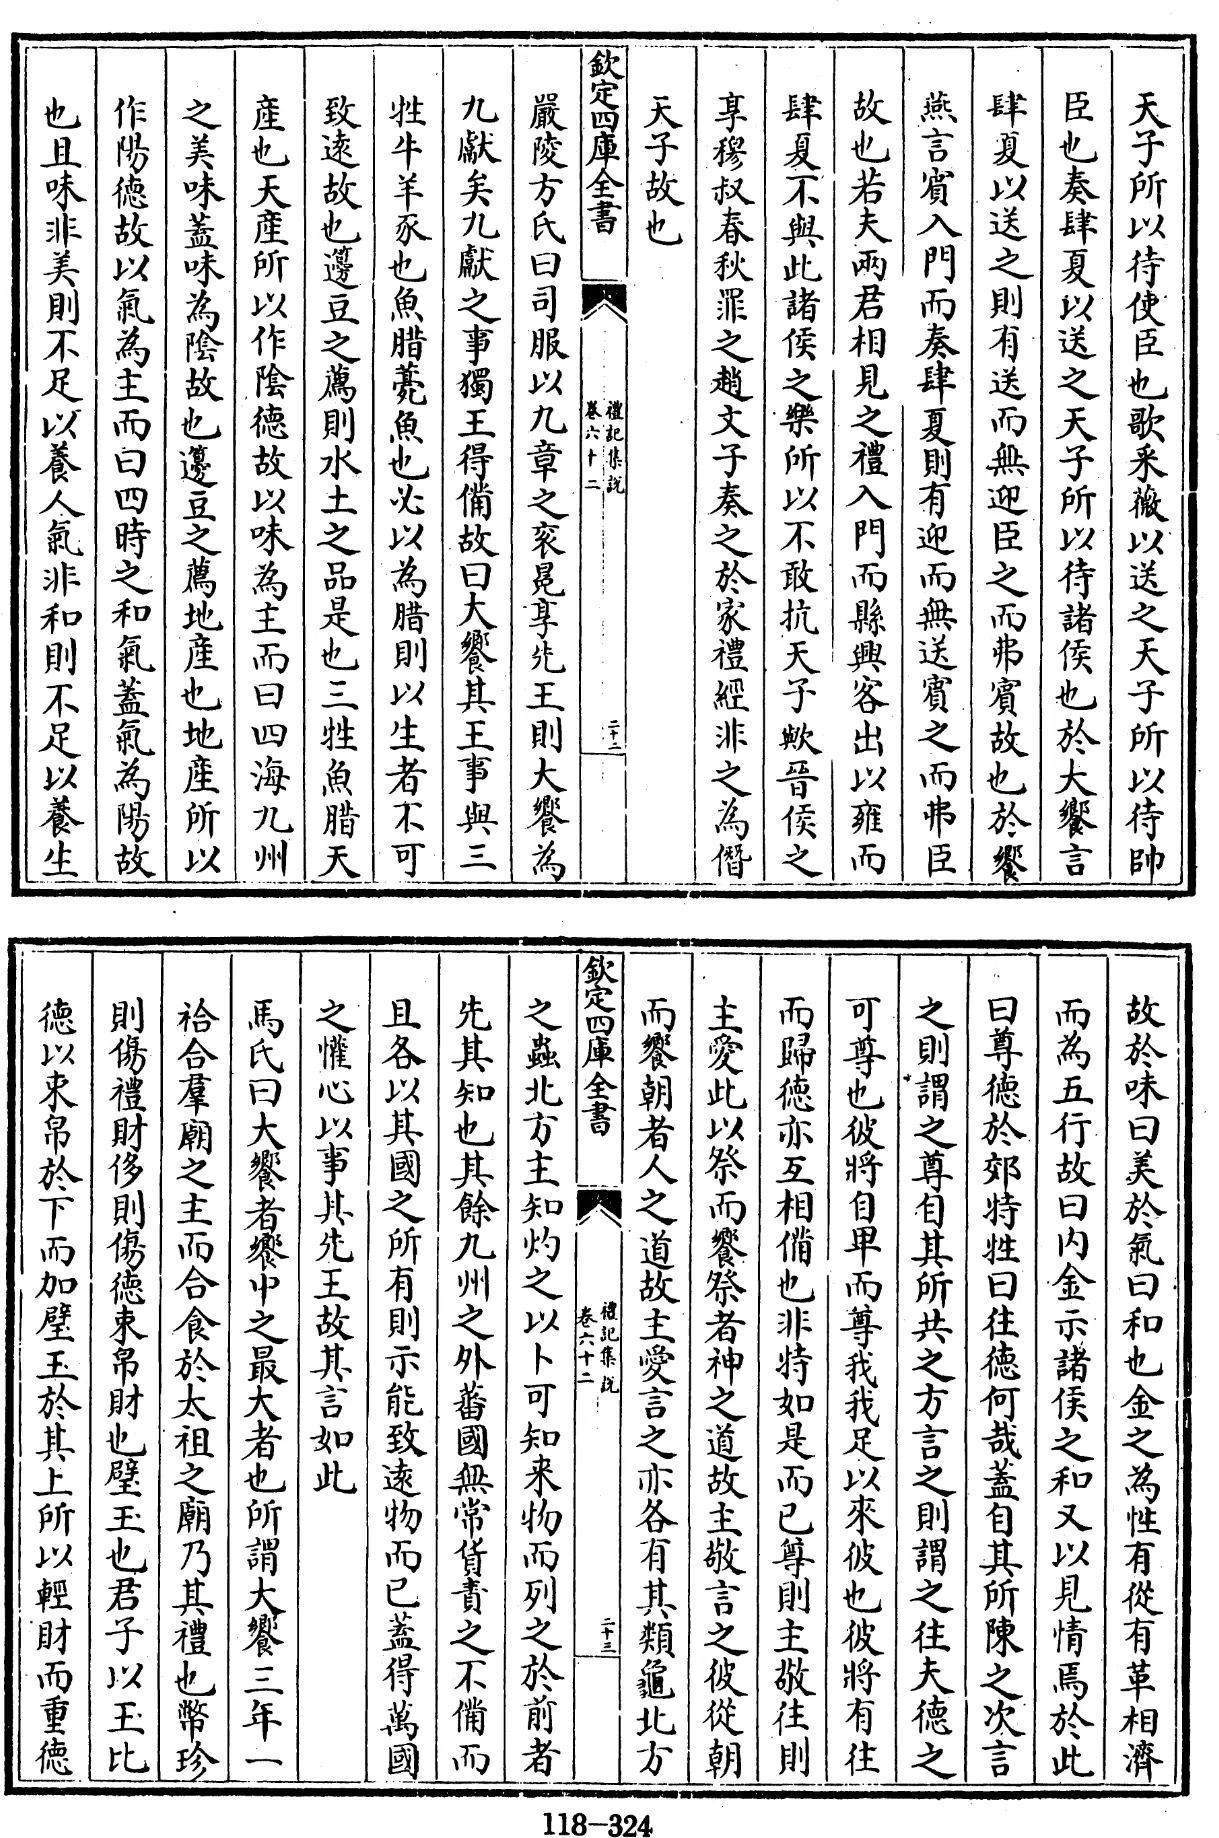 天子所以待使臣也歌采薇以送之天子所以待帥
臣也奏肆夏以送之天子所以待諸侯也於大饗言
肆夏以送之則有送而無迎臣之而弗賓故也於饗
燕言賓入門而奏肆夏則有迎而無送賓之而弗臣
故也若夫兩君相見之禮入門而縣興客出以雍而
肆夏不與此諸侯之樂所以不敢抗天子歟晉侯之
享穆叔春秋罪之趙文子奏之於家禮經非之為僭
天子故也
欽定四庫全書
禮記集說
卷六十二
二十二
嚴陵方氏曰司服以九章之衮冕享先王則大饗為
九獻矣九獻之事獨王得備故曰大饗其王事與三
牲牛羊豕也魚腊薧魚也必以為腊則以生者不可
致遠故也籩豆之薦則水土之品是也三牲魚腊天
產也天產所以作陰德故以味為主而曰四海九州
之美味蓋味為陰故也籩豆之薦地產也地產所以
作陽德故以氣為主而曰四時之和氣蓋氣為陽故
也且味非美則不足以養人氣非和則不足以養生
故於味曰美於氣曰和也金之為性有從有革相濟
而為五行故曰内金示諸侯之和又以見情焉於此
曰尊德於郊特牲曰往德何哉蓋自其所陳之次言
之則謂之尊自其所共之方言之則謂之往夫德之
可尊也彼將自卑而尊我我足以來彼也彼將有往
而歸德亦互相備也非特如是而已尊則主敬往則
主愛此以祭而饗祭者神之道故主敬言之彼從朝
而饗朝者人之道故主愛言之亦各有其類龜北方
欽定四庫全書
禮記集說
卷六十二
二十三
之蟲北方主知灼之以卜可知来物而列之於前者
先其知也其餘九州之外蕃國無常貨責之不備而
且各以其國之所有則示能致遠物而已蓋得萬國
之懽心以事其先王故其言如此
馬氏曰大饗者饗中之最大者也所謂大饗三年一
祫合羣廟之主而合食於太祖之廟乃其禮也幣珍
則傷禮財侈則傷德束帛財也璧玉也君子以玉比
德以束帛於下而加璧玉於其上所以輕財而重德
118-324